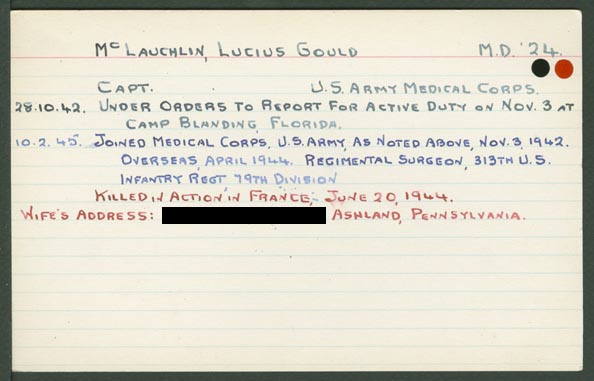 McLAUCHLIN, LUCIUS GOULD M.D. '24.
CAPT. U.S. ARMY MEDICAL CORPS.
28.10.42. UNDER ORDERS TO REPORT FOR ACTIVE DUTY ON NOV. 3 AT
CAMP BLANDING, FLORIDA.
10.2.45. JOINED MEDICAL CORPS, U.S. ARMY, AS NOTED ABOVE, NOV. 3, 1942.
OVERSEAS, APRIL 1944. REGIMENTAL SURGEON, 313TH U.S.
INFANTRY REGT 79TH DIVISION
KILLED IN ACTION IN FRANCE, JUNE 20, 1944.
WIFE'S ADDRESS: ASHLAND, PENNSYLVANIA.